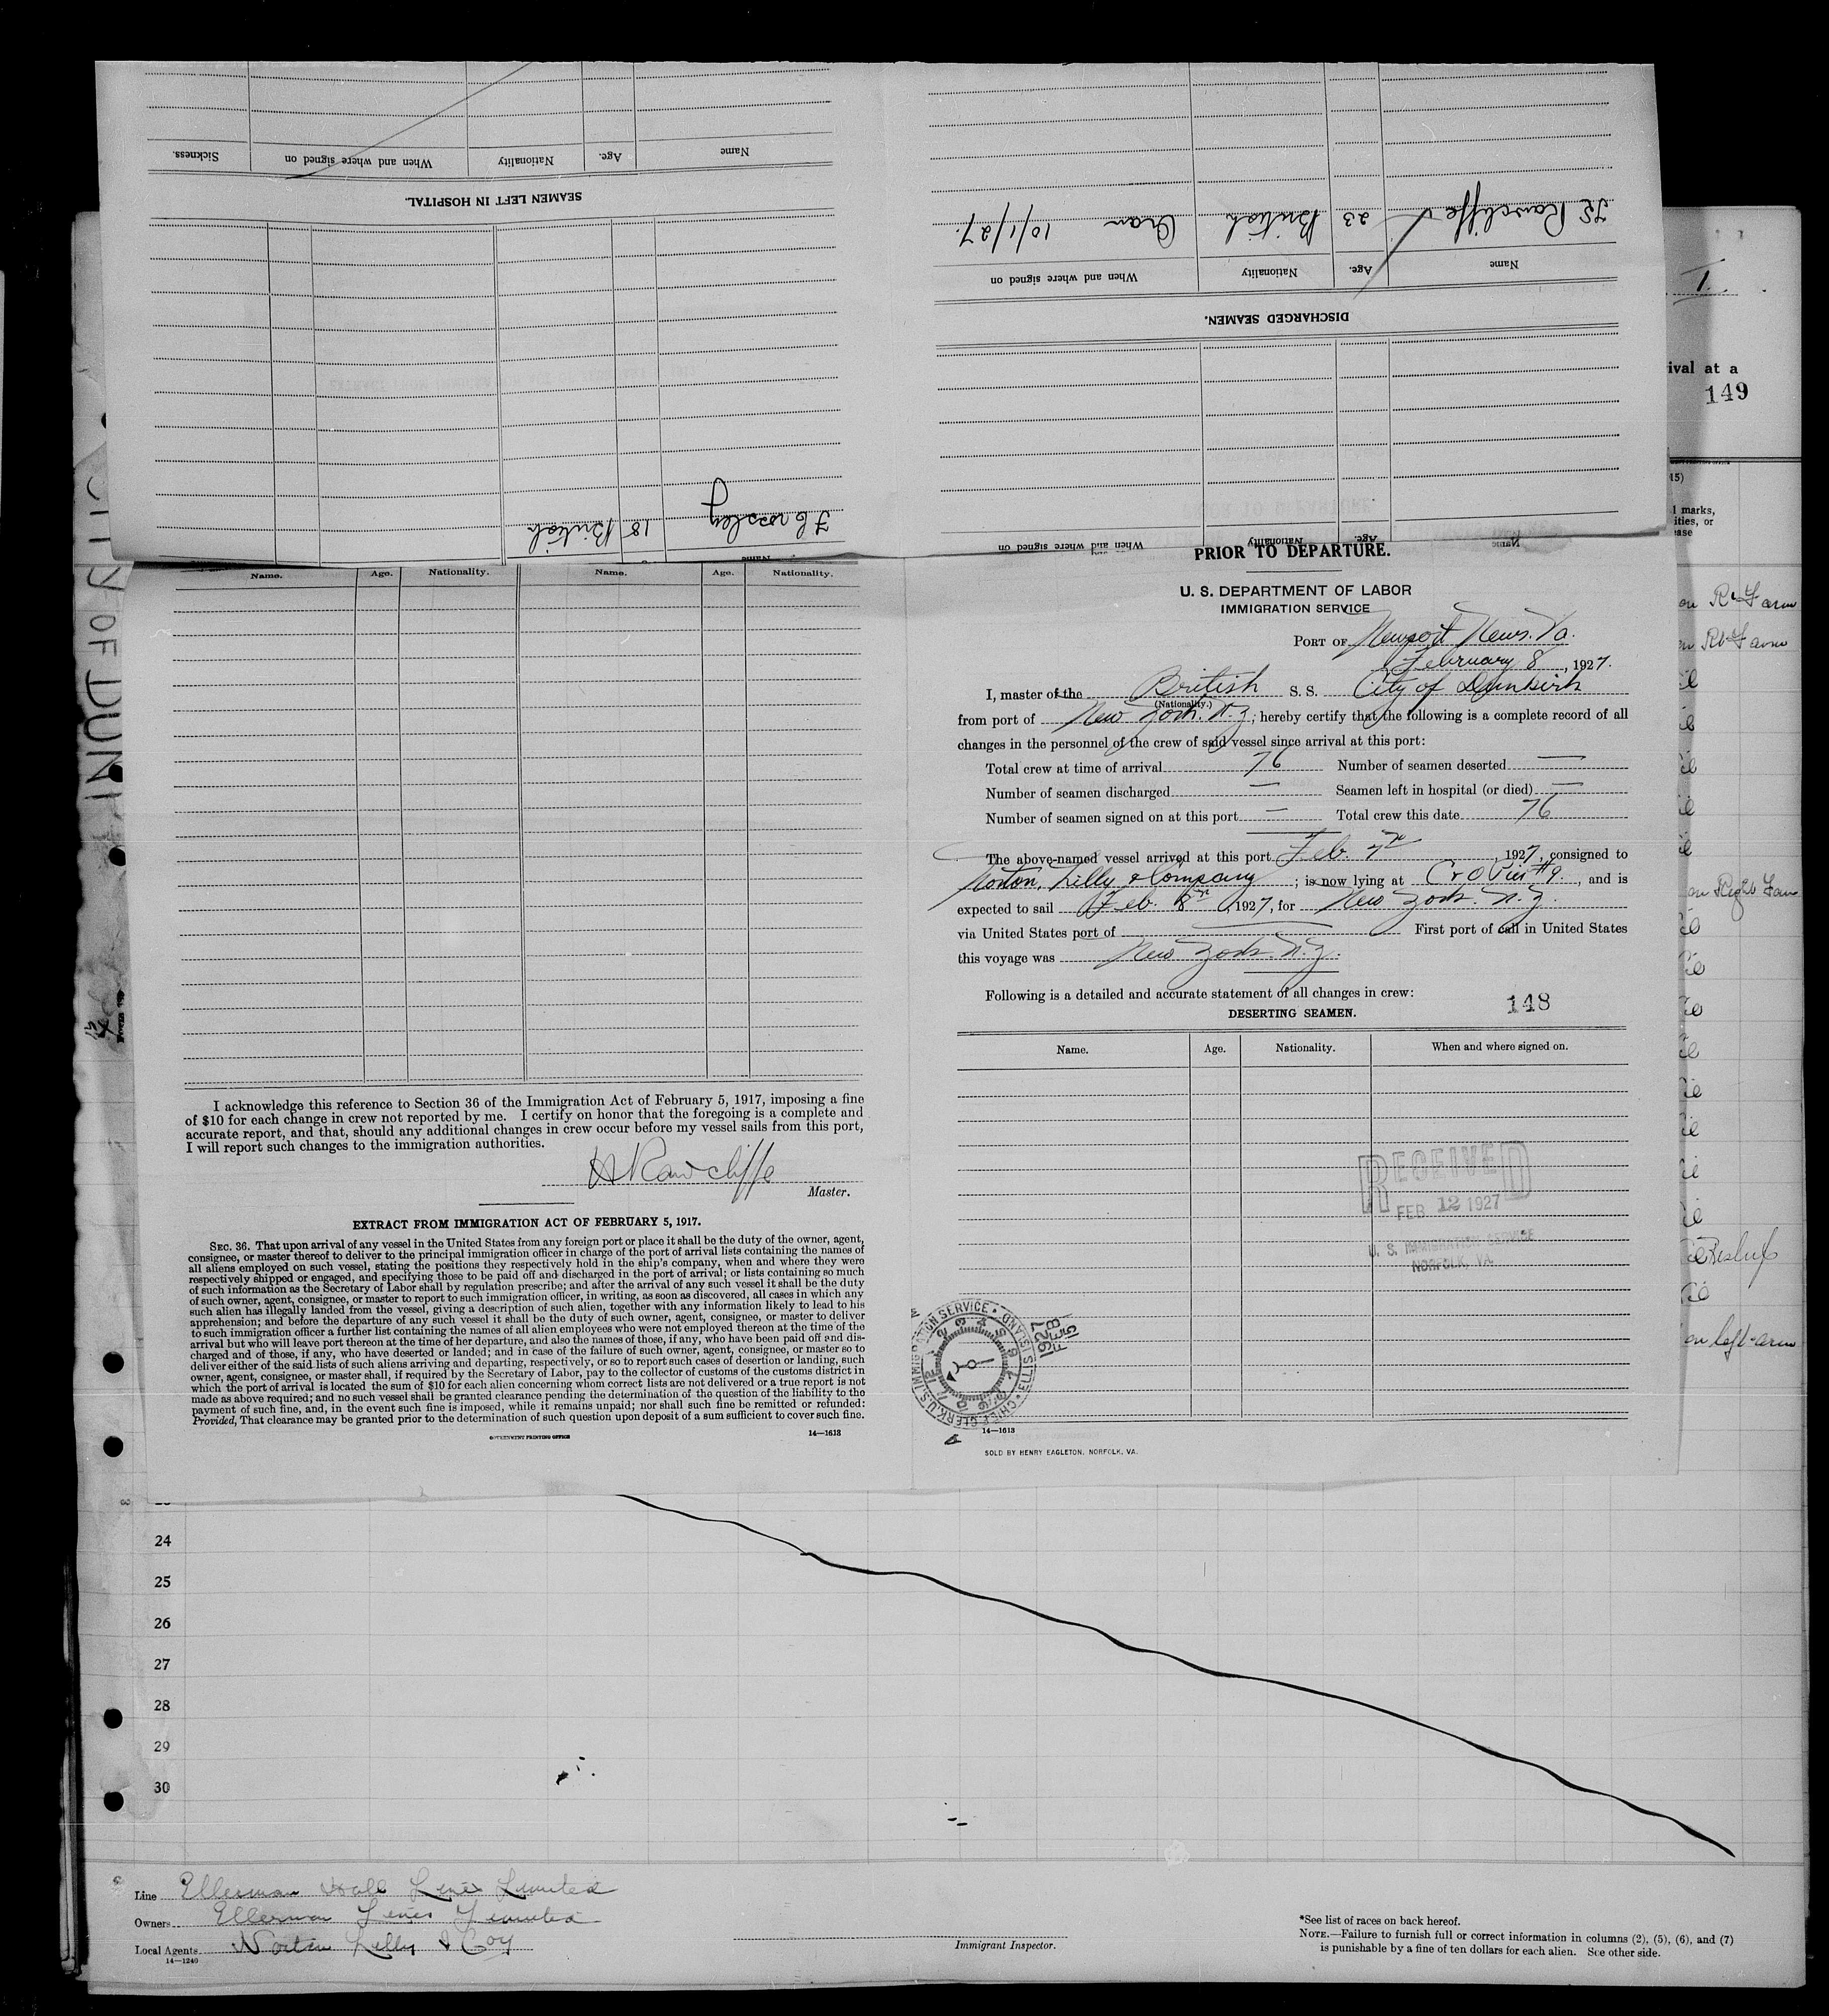 Sickness.
When and where signed on
Nationality
Age.
Name
SEAMEN LEFT IN HOSPITAL.
F Crossley 18 British
Name
JS Rawcliffe 23 British Oran 10/1/27.
Name
Age.
Nationality
When and where signed on
DISCHARGED SEAMEN.
Name
Age.
Nationality
When and where signed on
I.
ival at a
149
15)
l marks,
ities, or
ease
on Rt Farm
Y OF DUN
Name. Age. Nationality. Name. Age. Nationality.
I acknowledge this reference to Section 36 of the Immigration Act of February 5, 1917, imposing a fine
of $10 for each change in crew not reported by me. I certify on honor that the foregoing is a complete and
accurate report, and that, should any additional changes in crew occur before my vessel sails from this port,
I will report such changes to the immigration authorities.
H Rawcliffe
Master.
EXTRACT FROM IMMIGRATION ACT OF FEBRUARY 5, 1917.
SEC. 36. That upon arrival of any vessel in the United States from any foreign port or place it shall be the duty of the owner, agent,
consignee, or master thereof to deliver to the principal immigration officer in charge of the port of arrival lists containing the names of
all aliens employed on such vessel, stating the positions they respectively hold in the ship's company, when and where they were
respectively shipped or engaged, and specifying those to be paid off and discharged in the port of arrival; or lists containing so much
of such information as the Secretary of Labor shall by regulation prescribe; and after the arrival of any such vessel it shall be the duty
of such owner, agent, consignee, or master to report to such immigration officer, in writing, as soon as discovered, all cases in which any
such alien has illegally landed from the vessel, giving a description of such alien, together with any information likely to lead to his
apprehension; and before the departure of any such vessel it shall be the duty of such owner, agent, consignee, or master to deliver
to such immigration officer a further list containing the names of all alien employees who were not employed thereon at the time of the
arrival but who will leave port thereon at the time of her departure, and also the names of those, if any, who have been paid off and dis-
charged and of those, if any, who have deserted or landed; and in case of the failure of such owner, agent, consignee, or master so to
deliver either of the said lists of such aliens arriving and departing, respectively, or so to report such cases of desertion or landing, such
owner, agent, consignee, or master shall, if required by the Secretary of Labor, pay to the collector of customs of the customs district in
which the port of arrival is located the sum of $10 for each alien concerning whom correct lists are not delivered or a true report is not
made as above required; and no such vessel shall be granted clearance pending the determination of the question of the liability to the
payment of such fine, and, in the event such fine is imposed, while it remains unpaid; nor shall such fine be remitted or refunded:
Provided, That clearance may be granted prior to the determination of such question upon deposit of a sum sufficient to cover such fine.
GOVERNMENT PRINTING OFFICE
14—1613
PRIOR TO DEPARTURE.
U. S. DEPARTMENT OF LABOR
IMMIGRATION SERVICE
PORT OF Newport News. Va.
February 8, 1927.
I, master of the British S. S. City of Dunkirk
(Nationality.)
from port of New York. N.Y; hereby certify that the following is a complete record of all
changes in the personnel of the crew of said vessel since arrival at this port:
Total crew at time of arrival 76 Number of seamen deserted —
Number of seamen discharged — Seamen left in hospital (or died) —
Number of seamen signed on at this port — Total crew this date 76
The above-named vessel arrived at this port Feb. 7th, 1927, consigned to
Norton, Lilly & Company; is now lying at C & O Pier #9., and is
expected to sail Feb. 8th, 1927, for New York. N.Y.
via United States port of — First port of call in United States
this voyage was New York. N.Y.
Following is a detailed and accurate statement of all changes in crew:
148
DESERTING SEAMEN.
Name. Age. Nationality. When and where signed on.
RECEIVED
FEB 12 1927
U. S. IMMIGRATION SERVICE
NORFOLK, VA.
CHIEF CLERK, U.S. IMMIGRATION SERVICE • ELLIS ISLAND
1927
FEB
15
14—1613
SOLD BY HENRY EAGLETON, NORFOLK, VA.
on left arm
24
25
26
27
28
29
30
Line Ellerman Hall Line Limited
Owners Ellerman Lines Limited
Local Agents Norton Lilly & Coy
14—1240
Immigrant Inspector.
*See list of races on back hereof.
NOTE.—Failure to furnish full or correct information in columns (2), (5), (6), and (7)
is punishable by a fine of ten dollars for each alien. See other side.